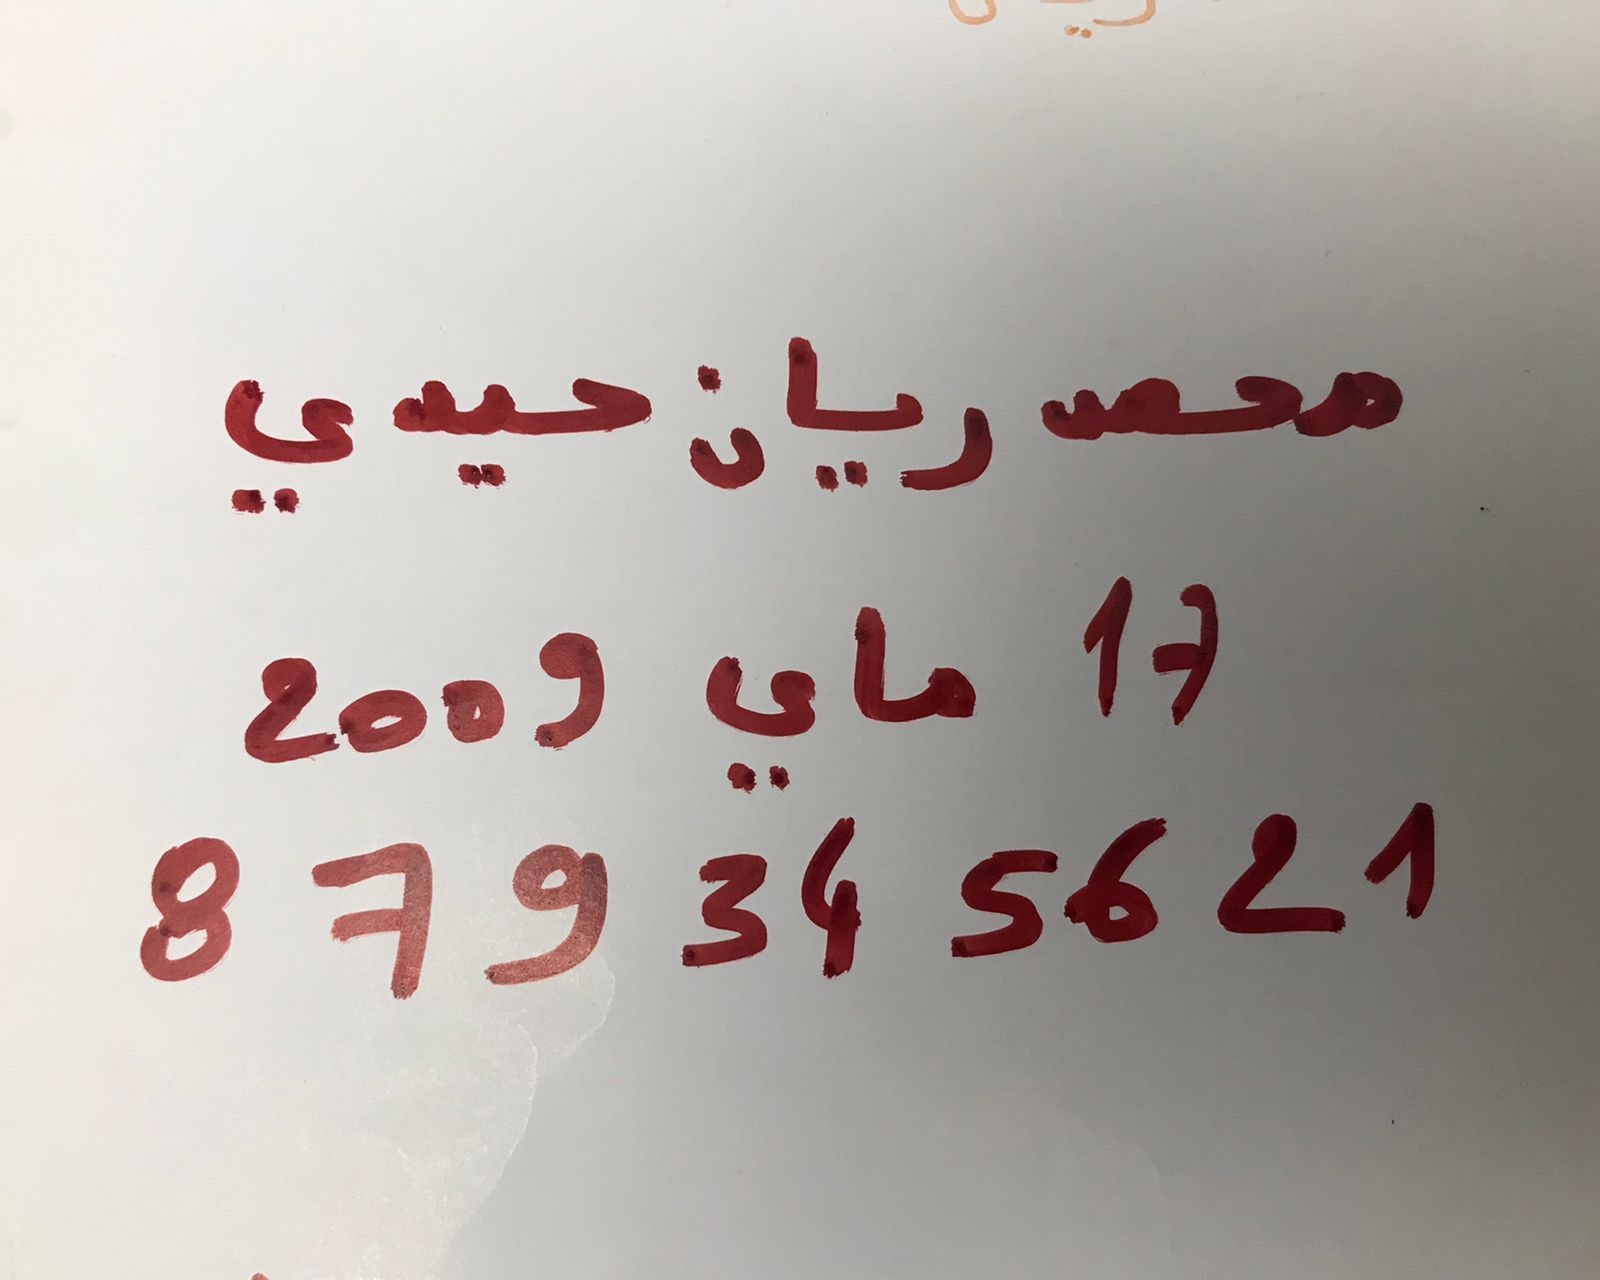 محمد ريان حيدي
17 ماي 2009
8 7 9 3 4 5 6 2 1